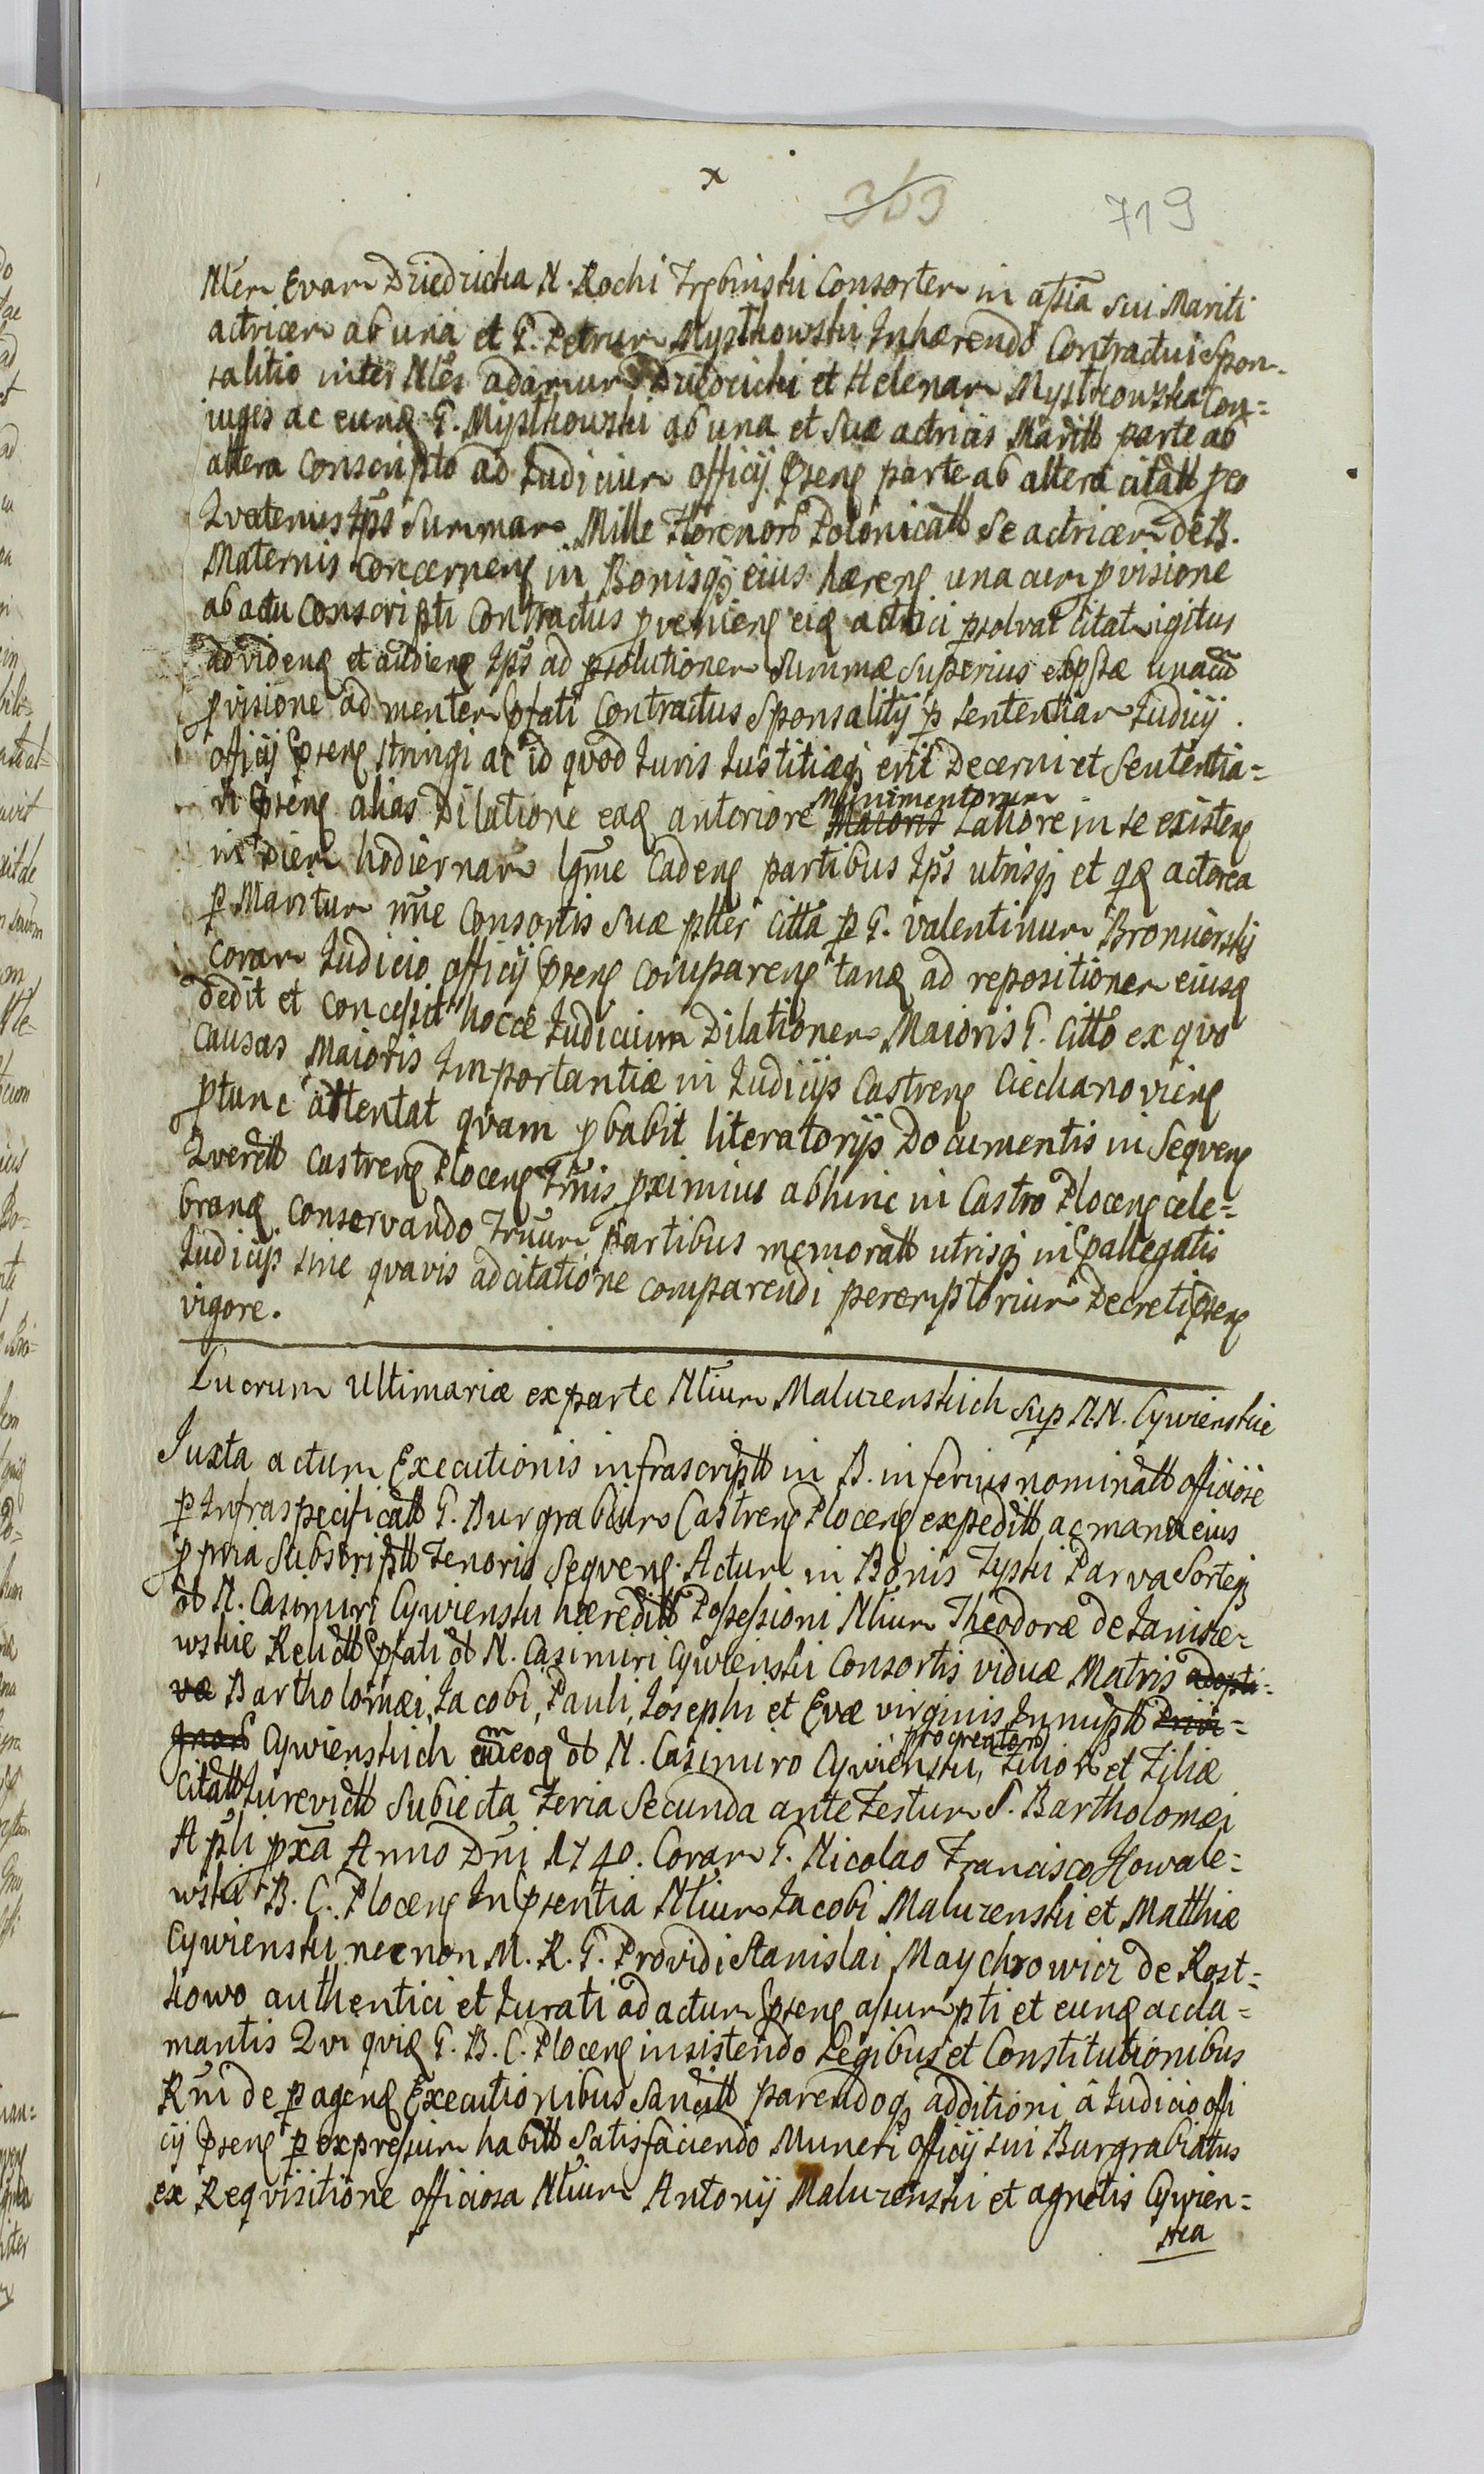 x
363
719
Nlem Evam Dziedzicka N. Rochi Trębinski Consortem in assia sui Mariti
actricem ab una et G. Petrum Mystkowski Inhærendo Contractui Spon-
salitio inter Nles Adamum Dziedzicki et Helenam Mystkowska Con=
iuges ac eund G. Mystkowski ab una et Suæ actricis Maritt parte ab
altera conscripto ad Iudicium officij pseng parte ab altera citatt pro
Qvatenus Ips Summam Mille Florenorb Polonicatt Se actricem de B.
Maternis Concerneng in Bonisqz eius hæreng una cum pvisione
ab actu Conscripti Contractus pvenieng eid actrici psolvat citat igitur
ad videnq et audienq Ips ad psolutionem Summæ superius expssæ unacū
pvisione ad mentem pfati Contractus Sponsalitij p sententiam Iudicij
officij pseng stringi ac id quod Iuris Iustitiæqz erit Decerni et Sententia=
ri pseng alias Dilatione ead anteriore Maioris Munimentorum Latiore in se existeng
in Diem hodiernam lgme Cadeng partibus Ips utrisqz et qd actorea
p Maritum nne Consortis Suæ plter citta p G. Valentinum Bronierskij
coram Iudicio officij pseng compareng tanq ad repositionem eiusd
dedit et concessit hocce Iudicium Dilationem Maioris G. Citto ex quo
causas Maioris Importantiæ in Iudicijs Castreng Ciechanovieng
ptunc attentat qvam pbabit literatorijs Documentis in Seqveng
Qverett Castreng Ploceng Trmis pximius abhinc in Castro Ploceng cele=
brand conservando Trnum partibus memoratt utrisqz in pallegatis
Iudicijs sine qvavis adcitatione comparendi peremptorium Decreti pseng
vigore.
Lucrum Ultimariæ ex parte Nlium Maluzenskich sup N.N. Cywienskie
Iuxta actum Executionis infrascriptt in B. inferius nominatt officiose
p Infraspecificatt G. Burgrabium Castreng Ploceng expeditt ac manu eius
ppria Subscriptt Tenoris Seqveng. Actum in Bonis Zyski Parva Sorteqz
ot N. Casimiri Cywienski hæreditt Possessioni Nlium Theodoræ de Janisze-
wskie Relictt pfati ot N. Casimiri Cywienski Consortis viduæ Matris adopti-
væ Bartholomæi, Jacobi, Pauli, Josephi et Evæ virginis Innuptt Privi=
gnorb Cywienskich cum eod ot N. Casimiro Cywienski, procreatorb Filiorb et Filiæ
Citatt Iurevictt Subiecta Feria Secunda ante Festum S. Bartholomæi
Apli pxa Anno Dni 1740. Coram G. Nicolao Francisco Kowale=
wski B. C. Ploceng In psentia Nlium Jacobi Maluzenski et Matthiæ
Cywienski necnon M. R. G. Providi Stanislai Maychrowicz de Rost=
kowo authentici et Iurati ad actum pseng assumpti et eund accla=
mantis Qvi qvid G. B. C. Ploceng insistendo Legibus et Constitutionibus
Rni de p ageng Executionibus Sancitt parendoqz additioni â Iudicio offi
cij pseng p expressum habitt Satisfaciendo Muneri officij sui Burgrabiatus
ex Reqvisitione officiosa Nlium Antonij Maluzenski et Agnetis Cywien=
skea